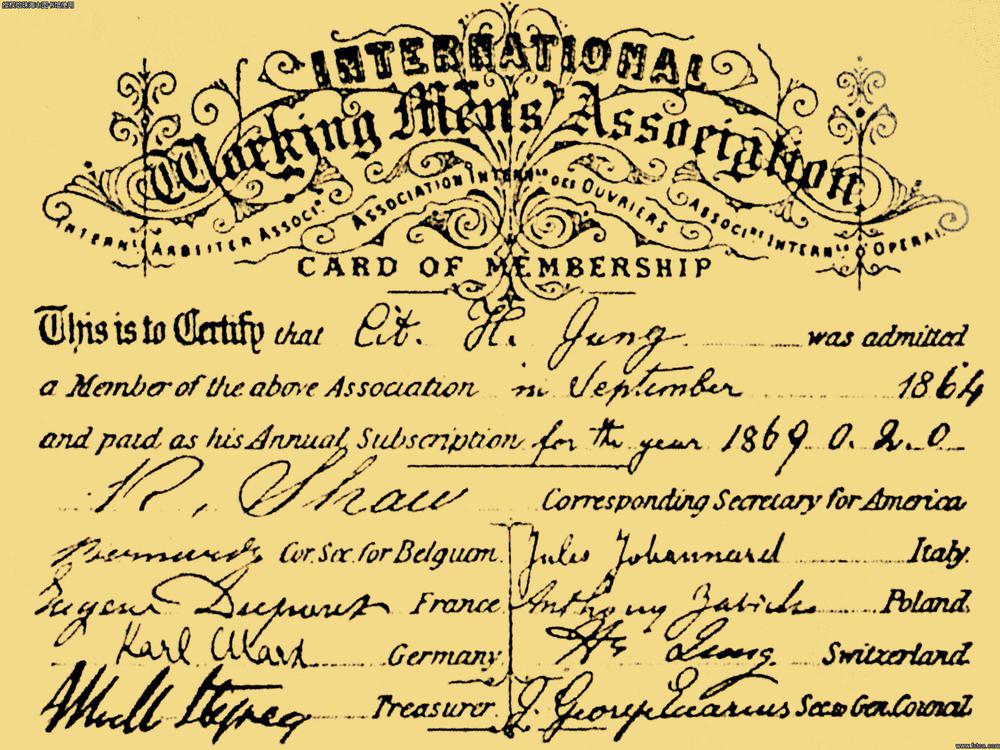 INTERNATIONAL
Working Men's Association
INTERNLE ARBEITER ASSOCN
ASSOCIATION INTERNLE DES OUVRIERS
ASSOCINE INTERNLE OPERAI
CARD OF MEMBERSHIP
This is to Certify that Cit. H. Jung was admitted
a Member of the above Association in September 1864
and paid as his Annual Subscription for the year 1869 0. 2. 0
R. Shaw Corresponding Secretary for America
Cor. Sec. for Belgium.
Jules Johannard Italy.
Eugene Dupont France.
Anthony Zabicki Poland.
Karl Marx Germany.
H. Jung Switzerland.
Treasurer.
J. George Eccarius Sec to Gen. Council
www.fotoe.com